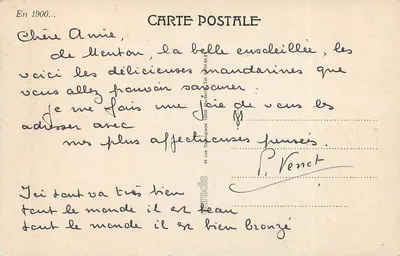 En 1900...
CARTE POSTALE
Chère Amie,
de Menton, la belle ensoleillée, les
voici les délicieuses mandarines que
vous allez pouvoir savourer.
je me fais une joie de vous les
adresser avec
mes plus affectueuses pensées.
Ici tout va très bien
tout le monde il est beau
tout le monde il est bien bronzé